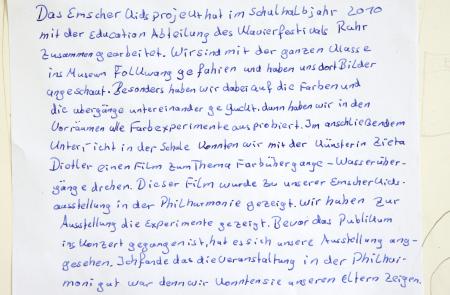 Das Emscher Kids projekt hat im Schulhalbjahr 2010
mit der Education Abteilung des Klavierfestivals Ruhr
zusammen gearbeitet. Wir sind mit der ganzen Klasse
ins Museum Folkwang gefahren und haben uns dort Bilder
angeschaut. Besonders haben wir dabei auf die Farben und
die übergänge untereinander geguckt. dann haben wir in den
Vorräumen alle Farbexperimente ausprobiert. Im anschließendem
Unterricht in der Schule konnten wir mit der Künsterin Zieta
einen Film zum Thema Farbübergänge - Wasserüber-
gänge drehen. Dieser Film wurde zu unserer EmscherKids-
ausstellung in der Philharmonie gezeigt. Wir haben zur
Ausstellung die Experimente gezeigt. Bevor das Publikum
ins Konzert gegangen ist, hat es sich unsere Ausstellung ang-
gesehen. Ich fande das die Veranstaltung in der Philhar-
moni gut war denn wir konnten sie unseren Eltern zeigen.